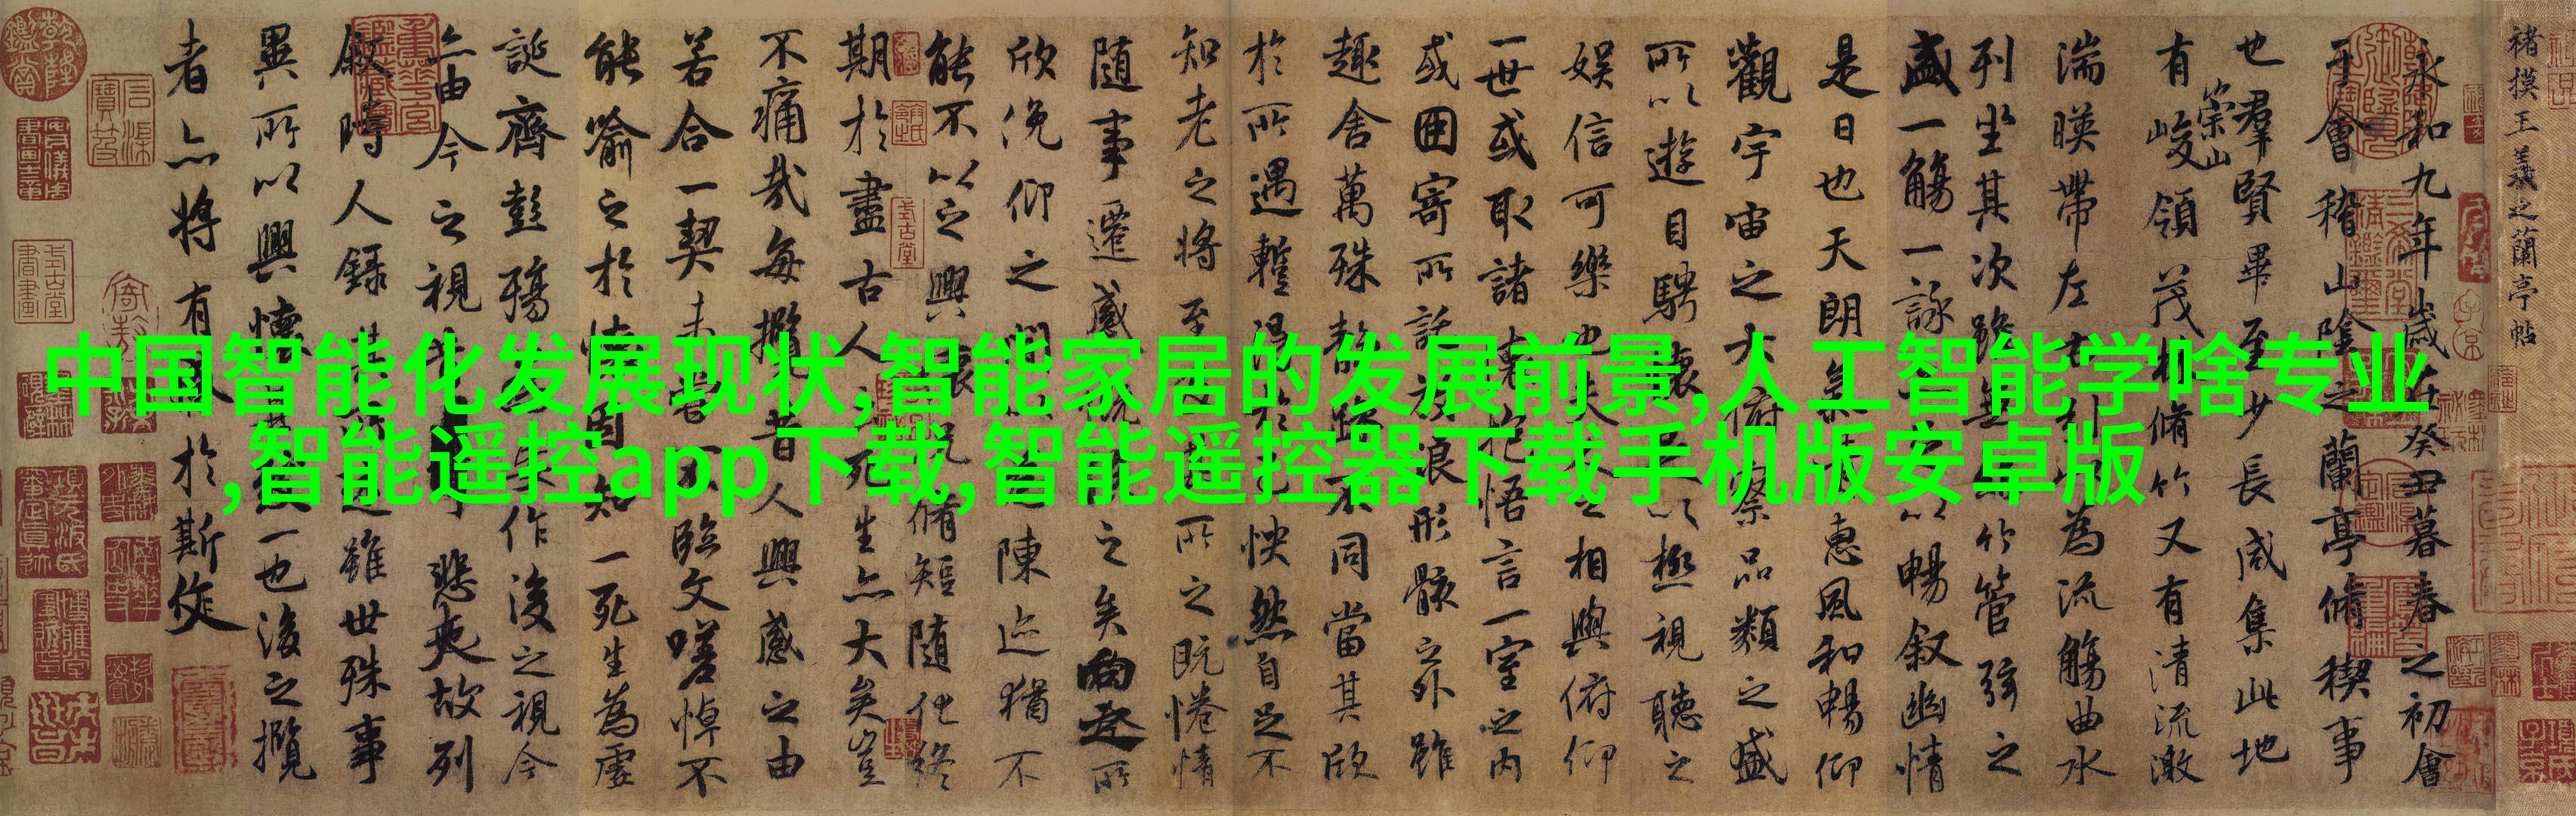 中国智能化发展现状,智能家居的发展前景,人工智能学啥专业
,智能遥控app下载,智能遥控器下载手机版安卓版
褚摸王羲之蘭亭帖
永和九年歲在癸丑暮春之初會
于會稽山陰之蘭亭脩稧事
也羣賢畢至少長咸集此地
有崇山峻領茂林脩竹又有清流激
湍暎帶左右引以為流觴曲水
列坐其次雖無絲竹管弦之
盛一觴一詠亦足以暢叙幽情
是日也天朗氣清惠風和暢仰
觀宇宙之大俯察品類之盛
所以遊目騁懷足以極視聽之
娛信可樂也夫人之相與俯仰
一世或取諸懷抱悟言一室之內
或因寄所託放浪形骸之外雖
趣舍萬殊靜躁不同當其欣
於所遇蹔得於己怏然自足不
知老之將至及其所之既惓情
隨事遷感慨係之矣向之所
欣俛仰之間以為陳迹猶不
能不以之興懷況脩短隨化終
期於盡古人云死生亦大矣豈
不痛哉每攬昔人興感之由
若合一契未嘗不臨文嗟悼不
能喻之於懷固知一死生為虛
誕齊彭殤為妄作後之視今
亦由今之視昔悲夫故列
叙時人錄其所述雖世殊事
異所以興懷其致一也後之攬
者亦將有感於斯文